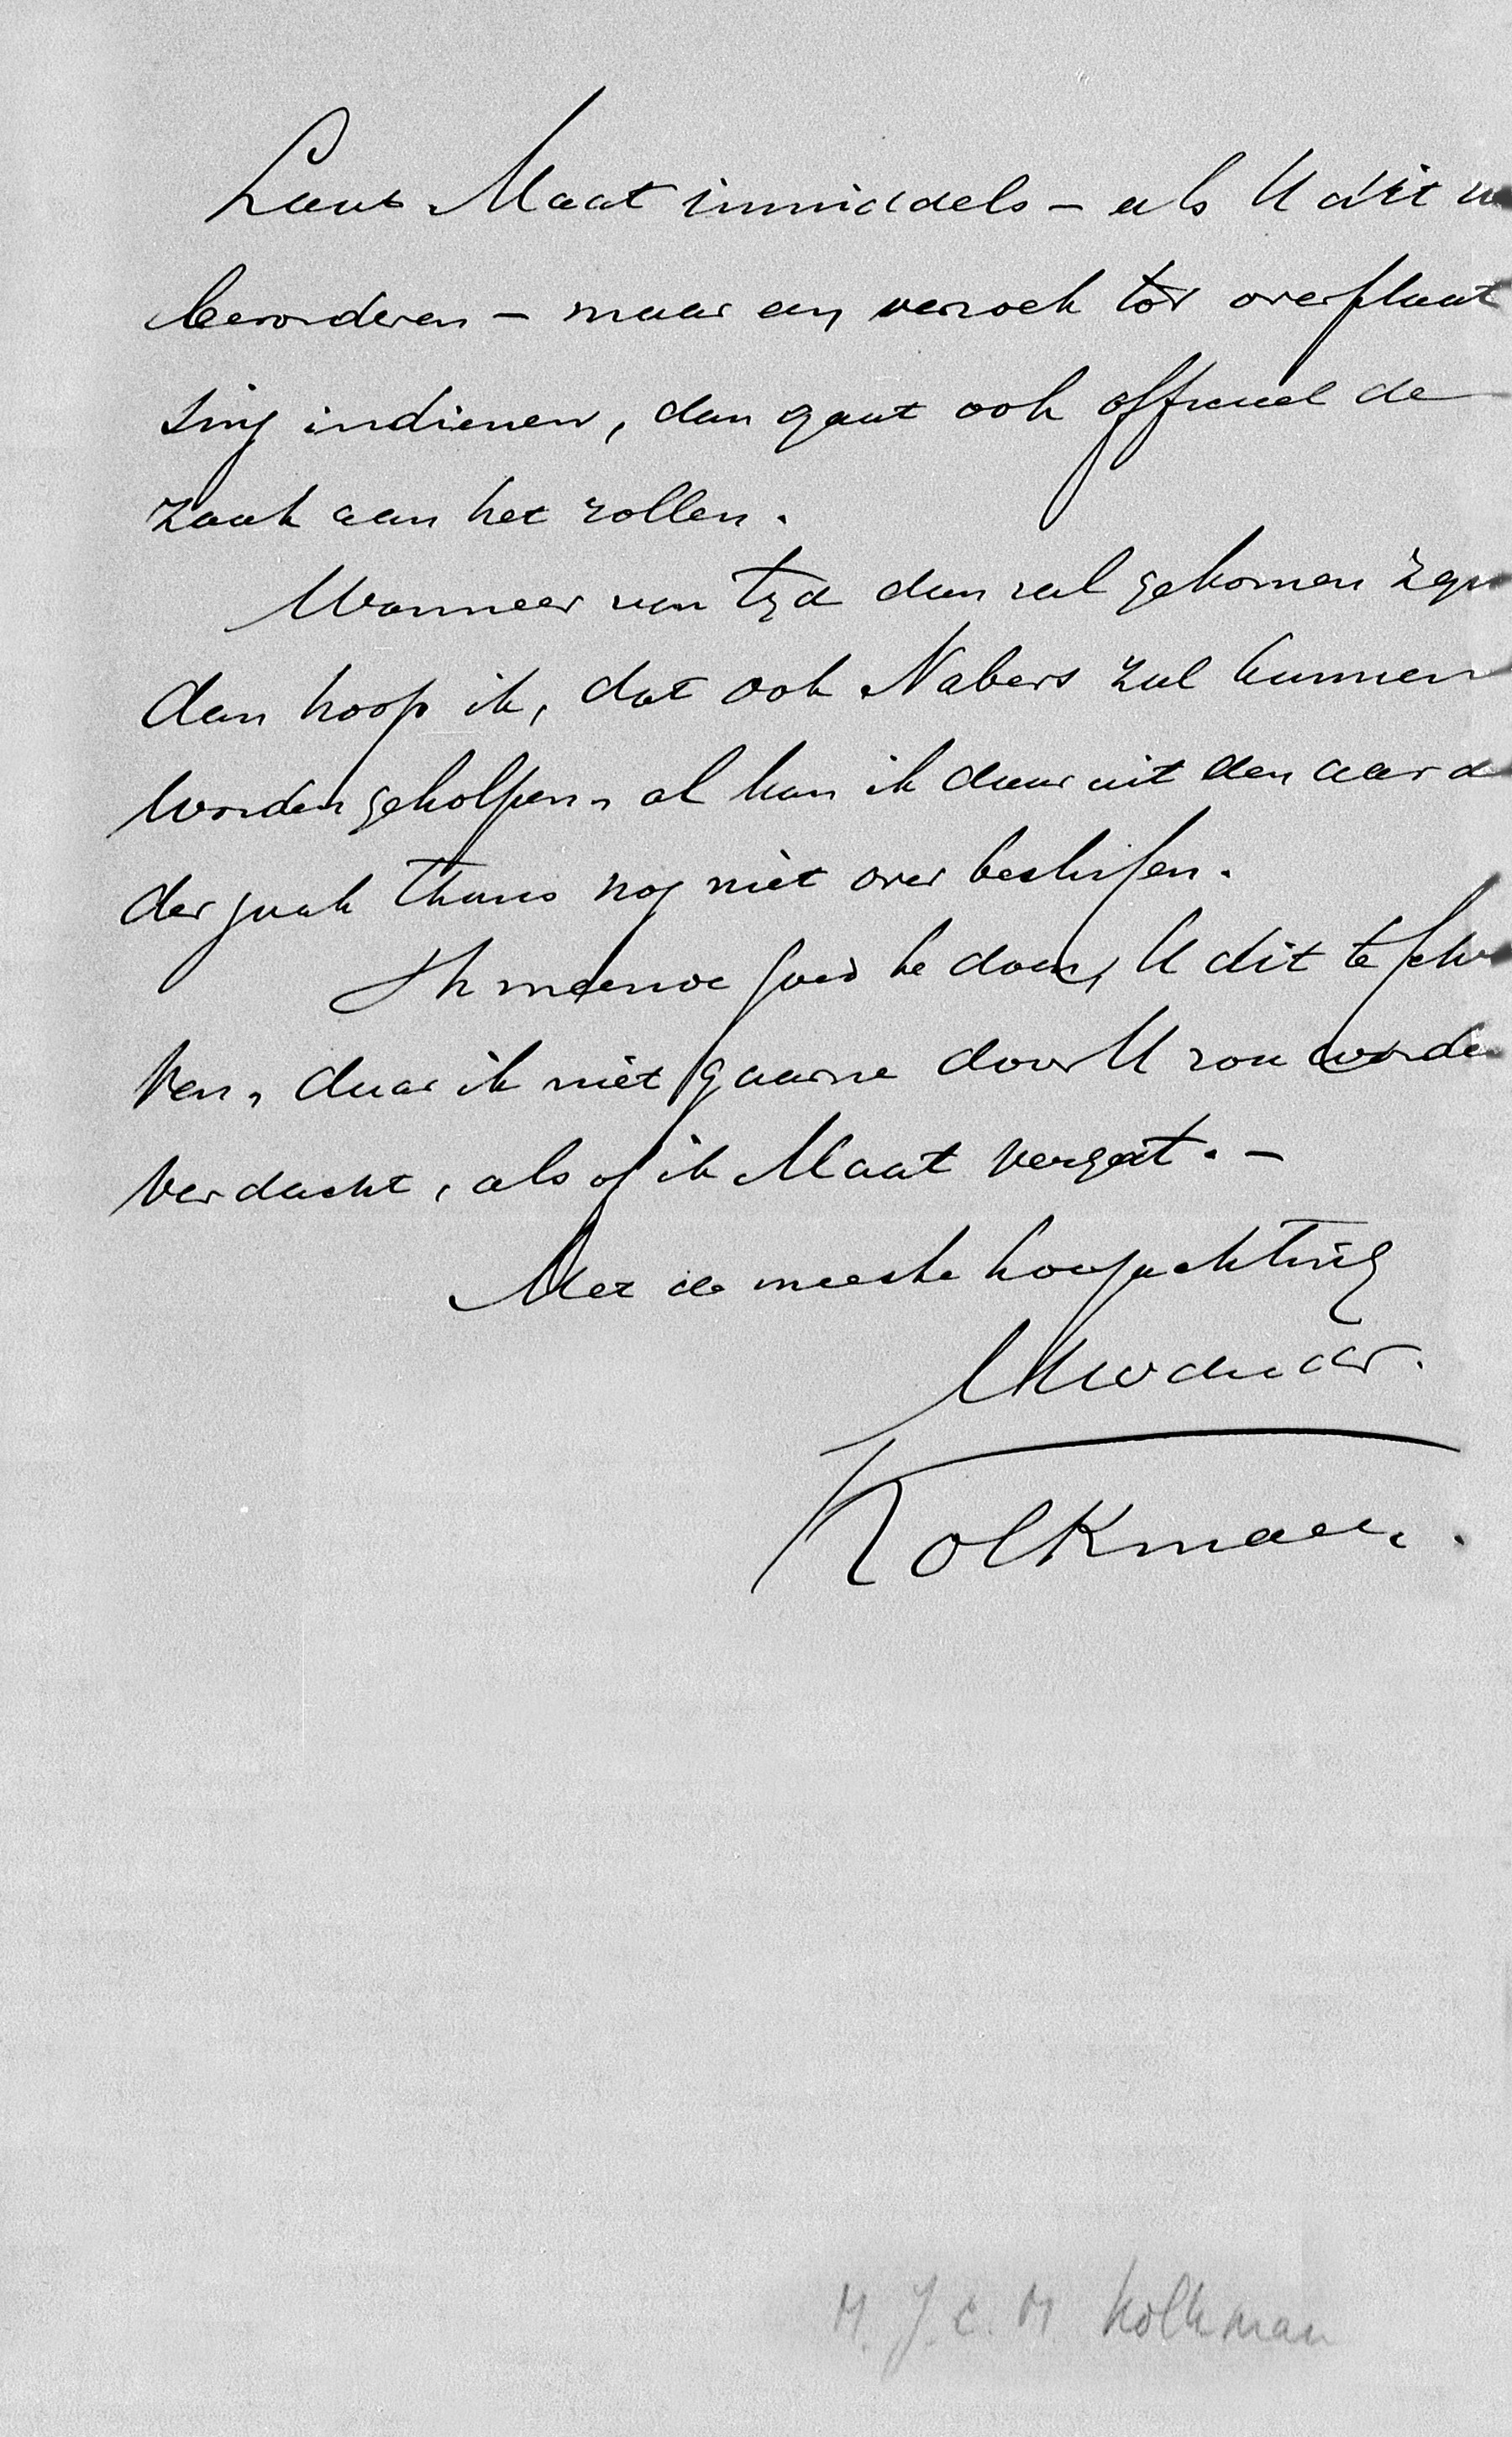 Laat Maat inmiddels – als U dit
bevorderen – maar een verzoek tot overplaat
sing indienen, dan gaat ook officieel de
zaak aan het rollen.
Wanneer van tijd dan zal gekomen zijn
dan hoop ik, dat ook Nabers zal kunnen
worden geholpen, al kan ik daar uit den aard
der zaak thans nog niet over beslissen.
Ik meende goed te doen, U dit te schr
ven, daar ik niet gaarne door U zou worden
verdacht, als of ik Maat vergat. –
Met de meeste hoogachting
Uw dw dr.
Kolkman.
M. J. C. M. Kolkman